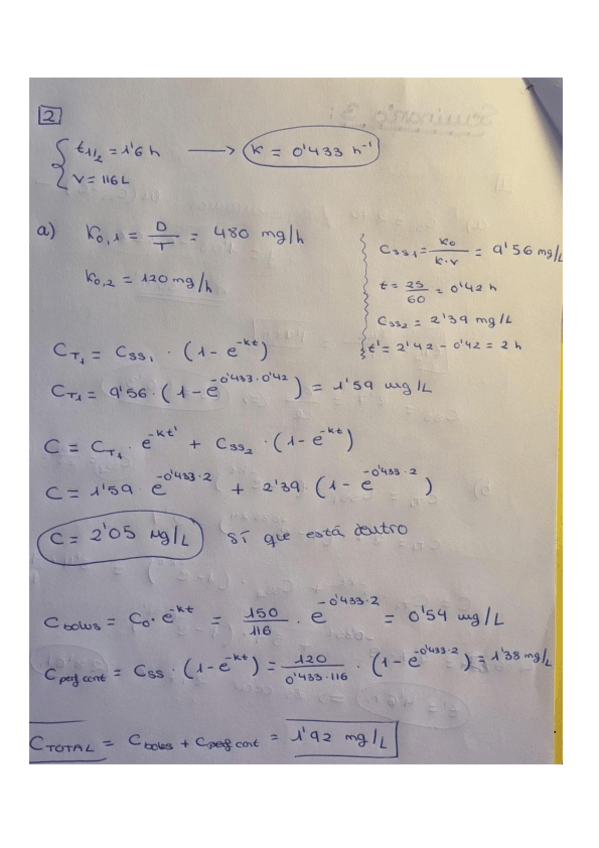 2
t1/2 = 1'6 h → K = 0'433 h⁻¹
V = 116 L
a) K0,1 = D/T = 480 mg/h
K0,2 = 120 mg/h
Css1 = K0/K·V = 9'56 mg/L
t = 25/60 = 0'42 h
Css2 = 2'39 mg/L
t' = 2'42 - 0'42 = 2 h
CT1 = Css1 · (1 - e^-kt)
CT1 = 9'56 · (1 - e^-0'433·0'42) = 1'59 mg/L
C = CT1 · e^-kt' + Css2 · (1 - e^-kt)
C = 1'59 · e^-0'433·2 + 2'39 · (1 - e^-0'433·2)
C = 2'05 mg/L Sí que está dentro
Cbolus = C0 · e^-kt = 150/116 · e^-0'433·2 = 0'54 mg/L
Cperf cont = Css · (1 - e^-kt) = 120/0'433·116 · (1 - e^-0'433·2) = 1'38 mg/L
CTOTAL = Cbolus + Cperf cont = 1'92 mg/L